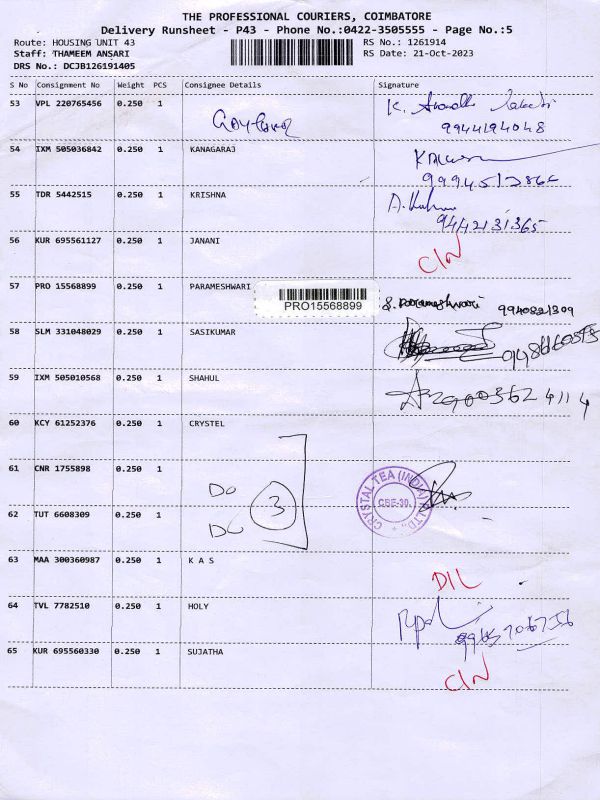 THE PROFESSIONAL COURIERS, COIMBATORE
Delivery Runsheet - P43 - Phone No.:0422-3505555 - Page No.:5
Route: HOUSING UNIT 43 RS No.: 1261914
Staff: THAMEEM ANSARI RS Date: 21-Oct-2023
DRS No.: DCJB126191405
S No Consignment No Weight PCS Consignee Details Signature
53 VPL 220765456 0.250 1 K.
9944194048
54 IXM 505036842 0.250 1 KANAGARAJ
55 TDR 5442515 0.250 1 KRISHNA
9442131365
56 KUR 695561127 0.250 1 JANANI
C/N
57 PRO 15568899 0.250 1 PARAMESHWARI
PRO15568899
S. Parameshwari 9940821309
58 SLM 331048029 0.250 1 SASIKUMAR
59 IXM 505010568 0.250 1 SHAHUL
9003624114
60 KCY 61252376 0.250 1 CRYSTEL
61 CNR 1755898 0.250 1
Do 3
CRYSTAL TEA (INDIA) LTD., CBE-30.
62 TUT 6608309 0.250 1
Do
63 MAA 300360987 0.250 1 K A S
D/L
64 TVL 7782510 0.250 1 HOLY
65 KUR 695560330 0.250 1 SUJATHA
C/N